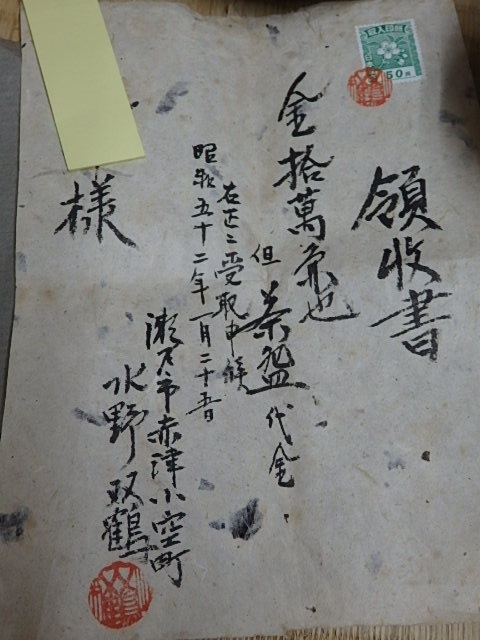 領収書
金拾萬円也
但 茶盌代金
右正ニ受取申候
昭和五十二年一月二十五日
瀬戸市赤津小空町
水野双鶴
様
収入印紙
50